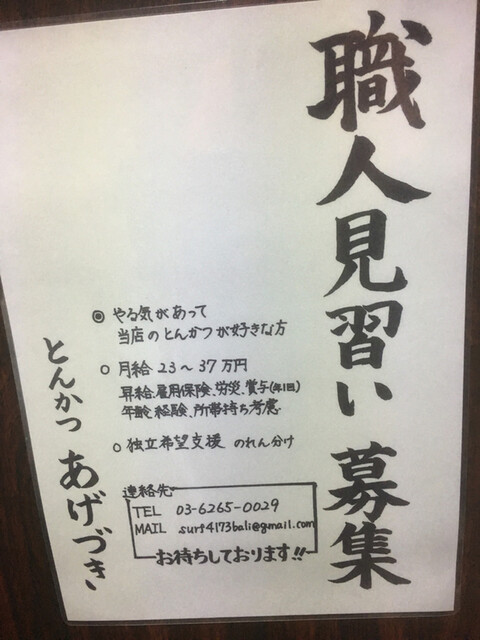 職人見習い 募集
◎ やる気があって
当店のとんかつが好きな方
○ 月給 23～37万円
昇給、雇用保険、労災、賞与(年1回)
年齢、経験、所帯持ち考慮
○ 独立希望支援 のれん分け
連絡先
TEL 03-6265-0029
MAIL surf4173bali@gmail.com
お待ちしております!!
とんかつ あげづき